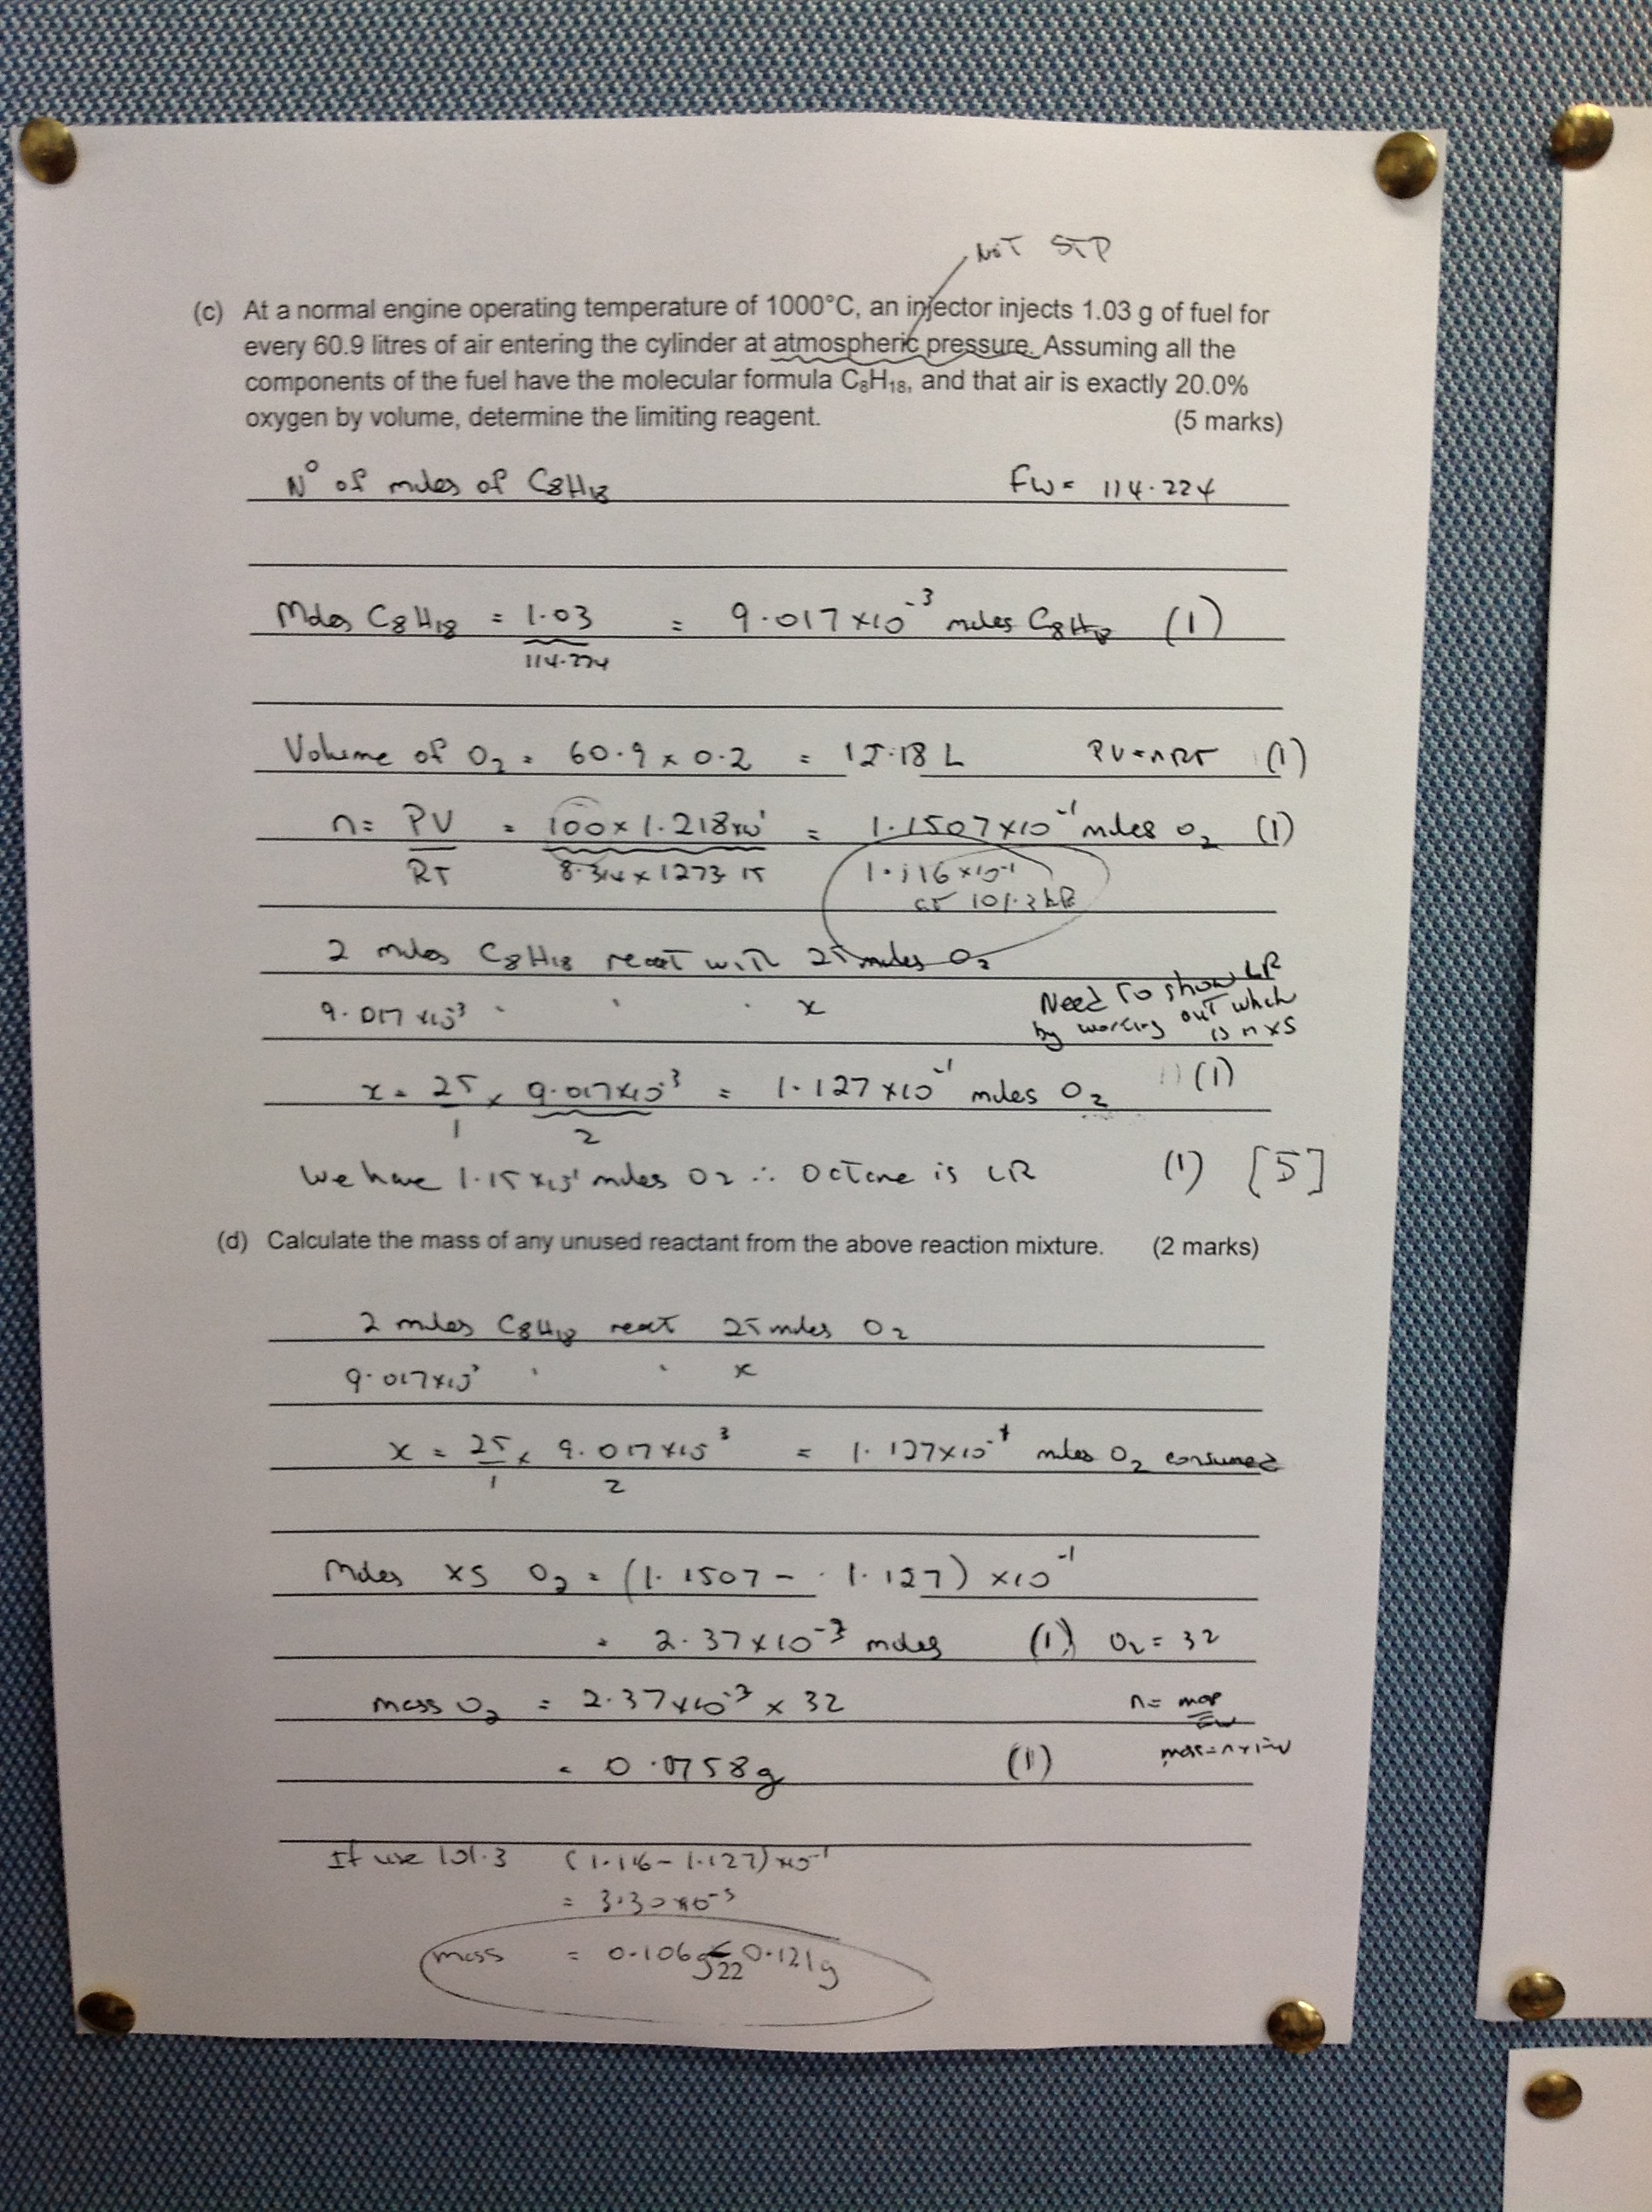 NOT STP
(c) At a normal engine operating temperature of 1000°C, an injector injects 1.03 g of fuel for
every 60.9 litres of air entering the cylinder at atmospheric pressure. Assuming all the
components of the fuel have the molecular formula C₈H₁₈, and that air is exactly 20.0%
oxygen by volume, determine the limiting reagent. (5 marks)
N° of moles of C₈H₁₈ FW = 114.224
Moles C₈H₁₈ = 1.03 = 9.017 × 10⁻³ moles C₈H₁₈ (1)
114.224
Volume of O₂ = 60.9 × 0.2 = 12.18 L PV = nRT (1)
n = PV = 100 × 1.218×10¹ = 1.1507 × 10⁻¹ moles O₂ (1)
RT 8.314 × 1273.15 1.116 × 10⁻¹
at 101.3 kPa
2 moles C₈H₁₈ react with 25 moles O₂
9.017 × 10⁻³ " " " x
Need to show LR
by working out which
is n xs
x = 25 × 9.017×10⁻³ = 1.127 × 10⁻¹ moles O₂ (1)
1 2
We have 1.15 × 10⁻¹ moles O₂ ∴ Octane is LR (1) [5]
(d) Calculate the mass of any unused reactant from the above reaction mixture. (2 marks)
2 moles C₈H₁₈ react 25 moles O₂
9.017×10⁻³ " " x
x = 25 × 9.017 × 10⁻³ = 1.127×10⁻¹ moles O₂ consumed
1 2
Moles xs O₂ = (1.1507 - 1.127) × 10⁻¹
= 2.37 × 10⁻³ moles (1) O₂ = 32
mass O₂ = 2.37×10⁻³ × 32 n = mass
FW
= 0.0758g (1) mass = n × FW
If use 101.3 (1.116 - 1.127) × 10⁻¹
= 3.30 × 10⁻³
mass = 0.106g 0.121g
22